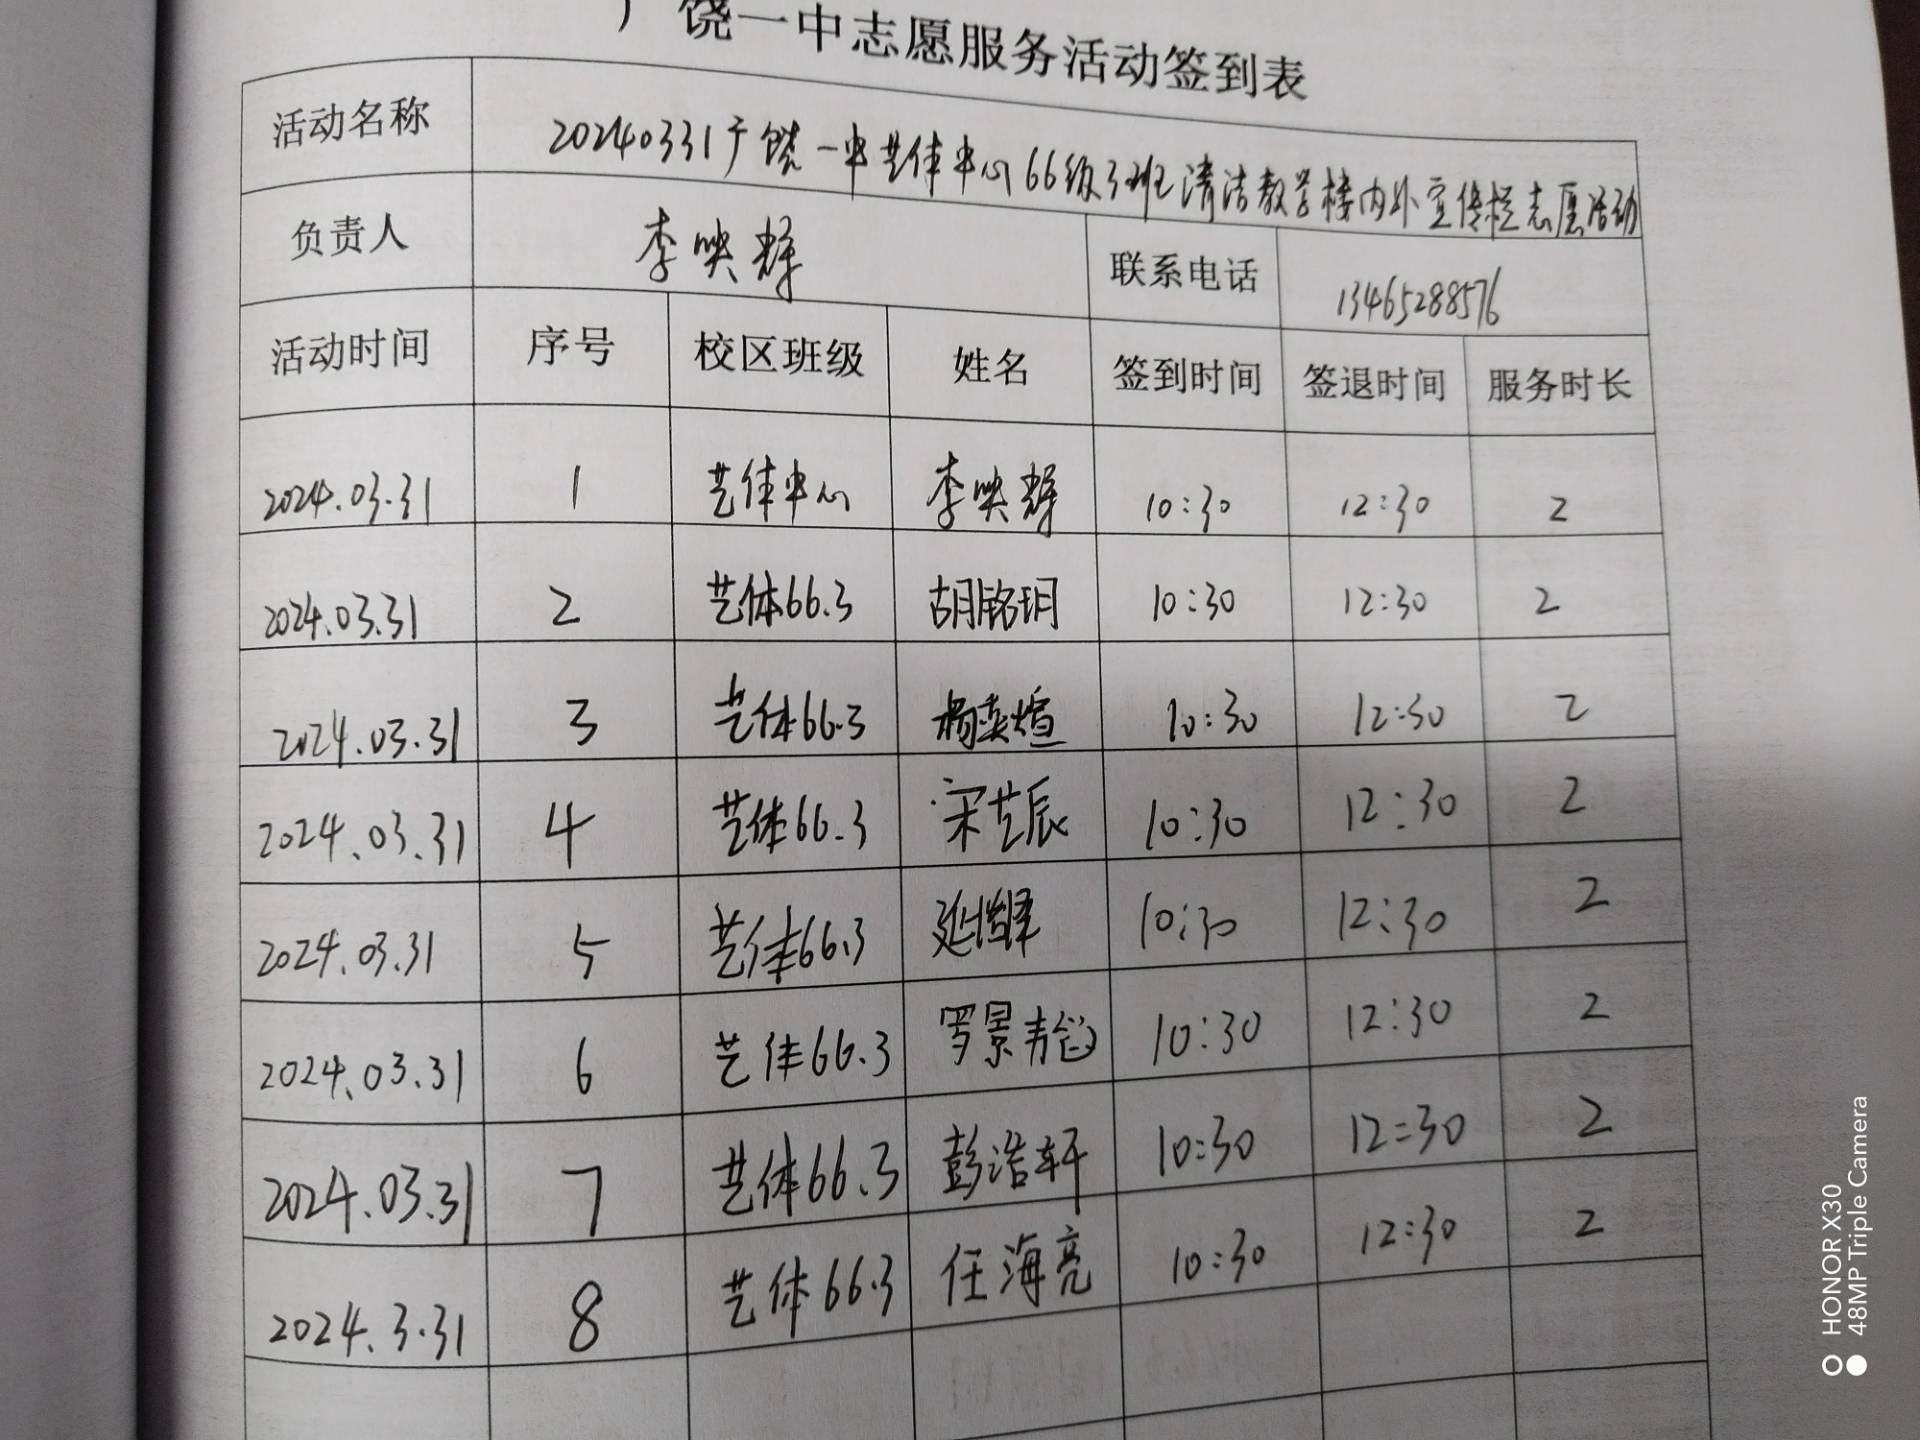 广饶一中志愿服务活动签到表
活动名称 20240331广饶一中艺体中心66级3班清洁教学楼内外宣传栏志愿活动
负责人 李映辉 联系电话 13465288576
活动时间 序号 校区班级 姓名 签到时间 签退时间 服务时长
2024.03.31 1 艺体中心 李映辉 10:30 12:30 2
2024.03.31 2 艺体66.3 胡铭玥 10:30 12:30 2
2024.03.31 3 艺体66.3 杨奕煊 10:30 12:30 2
2024.03.31 4 艺体66.3 宋艺辰 10:30 12:30 2
2024.03.31 5 艺体66.3 10:30 12:30 2
2024.03.31 6 艺体66.3 罗景 10:30 12:30 2
2024.03.31 7 艺体66.3 彭浩轩 10:30 12:30 2
2024.3.31 8 艺体66.3 任海亮 10:30 12:30 2
HONOR X30
48MP Triple Camera